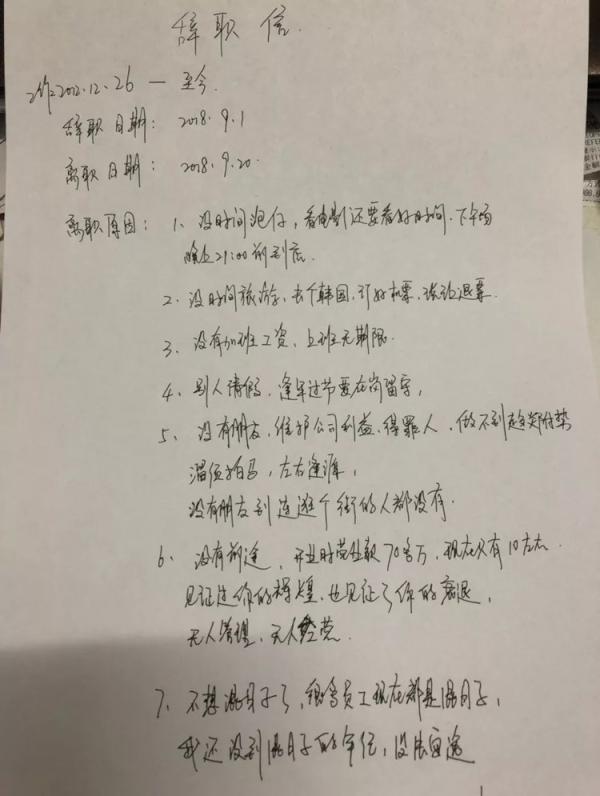 辞职信.
工作2012.12.26 — 至今.
辞职日期： 2018.9.1
离职日期： 2018.9.20.
离职原因： 1、没时间泡仔，看电影还要看好时间.下午场
晚上21:00前到店.
2、没时间旅游，去个韩国，订好机票，被迫退票.
3、没有加班工资，上班无期限.
4、别人请假，逢年过节要在岗留守，
5、没有朋友，维护公司利益，得罪人，做不到趋炎附势
溜须拍马，左右逢源，
没有朋友到连逛个街的人都没有.
6、没有前途，开业时营业额70多万，现在只有10左右.
见证过你的辉煌，也见证了你的衰退，
无人管理，无人经营.
7、不想混日子了，很多员工现在都是混日子，
我还没到混日子的年纪，没法